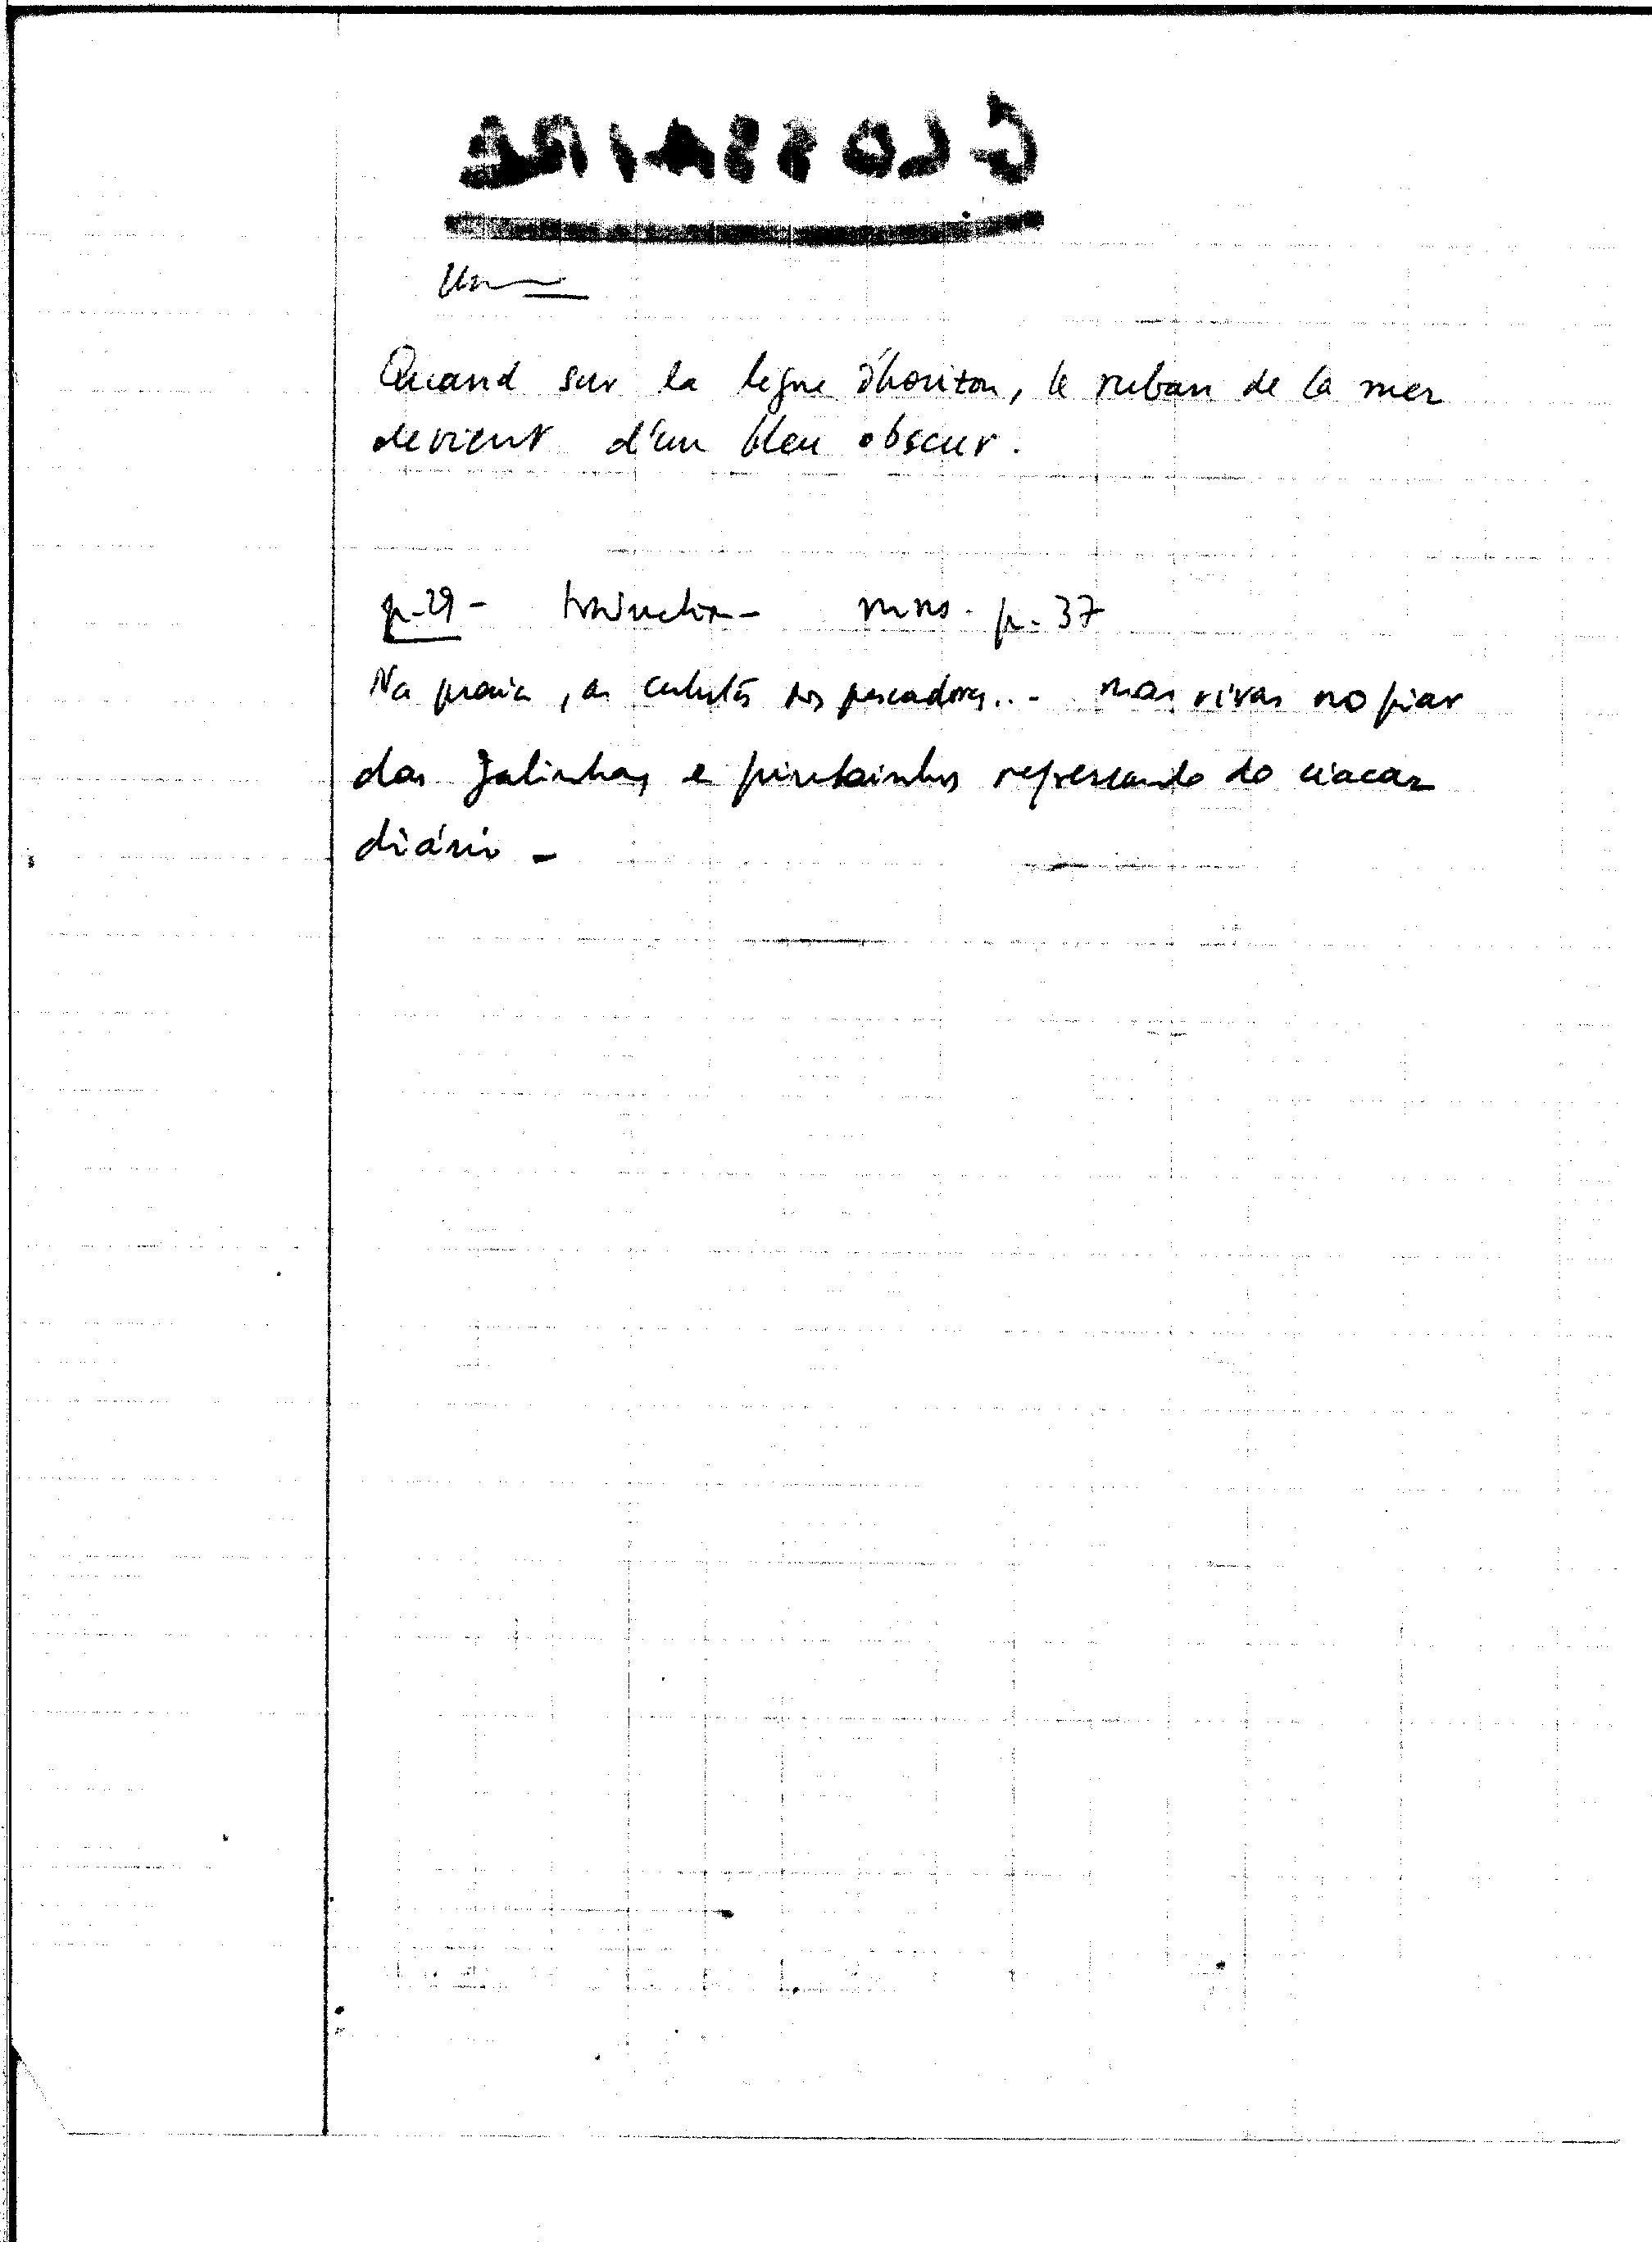 GLOSSAIRE
Quand sur la ligne d'horizon, le ruban de la mer
devient d'un bleu obscur.
p.29 - traduction - mns. p. 37
Na praia, as cubatas dos pescadores... mas vivas no piar
das galinhas e pintainhos regressando do ciscar
diário -